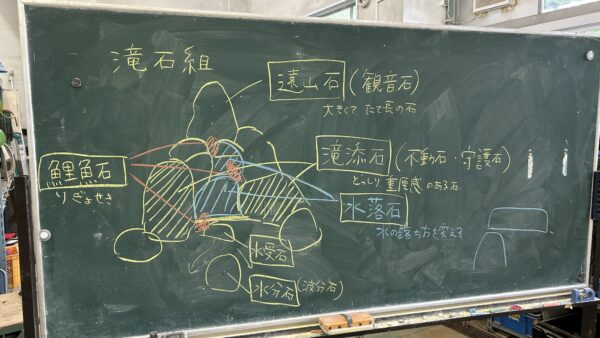 滝石組
遠山石(観音石)
大きくて たて長の石
滝添石(不動石・守護石)
どっしり 重厚感 のある石
鯉魚石
りぎょせき
水落石
水の落ち方を変える
水受石
水分石(波分石)